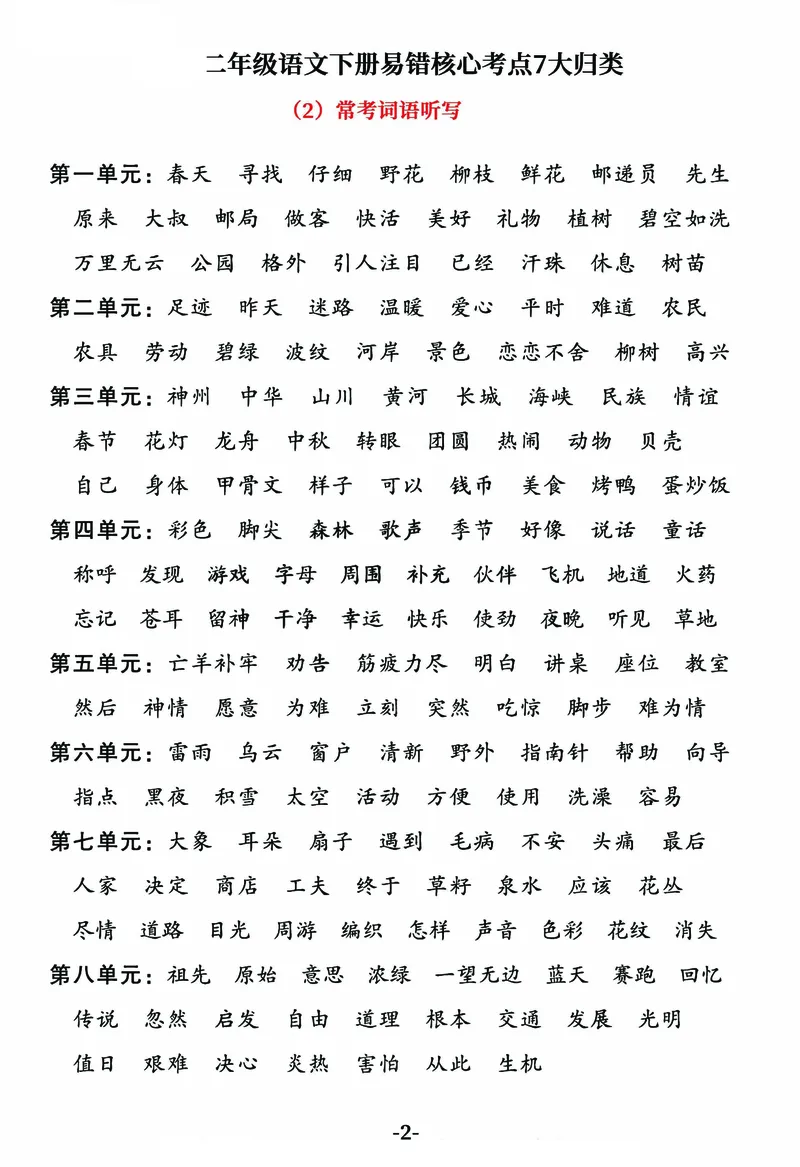 二年级语文下册易错核心考点7大归类
（2）常考词语听写
第一单元：春天 寻找 仔细 野花 柳枝 鲜花 邮递员 先生
原来 大叔 邮局 做客 快活 美好 礼物 植树 碧空如洗
万里无云 公园 格外 引人注目 已经 汗珠 休息 树苗
第二单元：足迹 昨天 迷路 温暖 爱心 平时 难道 农民
农具 劳动 碧绿 波纹 河岸 景色 恋恋不舍 柳树 高兴
第三单元：神州 中华 山川 黄河 长城 海峡 民族 情谊
春节 花灯 龙舟 中秋 转眼 团圆 热闹 动物 贝壳
自己 身体 甲骨文 样子 可以 钱币 美食 烤鸭 蛋炒饭
第四单元：彩色 脚尖 森林 歌声 季节 好像 说话 童话
称呼 发现 游戏 字母 周围 补充 伙伴 飞机 地道 火药
忘记 苍耳 留神 干净 幸运 快乐 使劲 夜晚 听见 草地
第五单元：亡羊补牢 劝告 筋疲力尽 明白 讲桌 座位 教室
然后 神情 愿意 为难 立刻 突然 吃惊 脚步 难为情
第六单元：雷雨 乌云 窗户 清新 野外 指南针 帮助 向导
指点 黑夜 积雪 太空 活动 方便 使用 洗澡 容易
第七单元：大象 耳朵 扇子 遇到 毛病 不安 头痛 最后
人家 决定 商店 工夫 终于 草籽 泉水 应该 花丛
尽情 道路 目光 周游 编织 怎样 声音 色彩 花纹 消失
第八单元：祖先 原始 意思 浓绿 一望无边 蓝天 赛跑 回忆
传说 忽然 启发 自由 道理 根本 交通 发展 光明
值日 艰难 决心 炎热 害怕 从此 生机
-2-